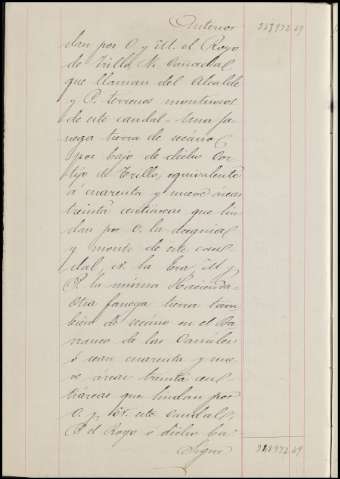 Anterior 323972 69
dan por O y M. el Royo
de Trillo N. Barrachal
que llaman del Alcalde
y P. terrenos montuosos
de este caudal = Una fa
nega tierra de secano
por bajo de dicho Cor
tijo de Trillo, equivalente
á cuarenta y nueve áreas
treinta centiáreas que lin
dan por O. la
y monte de este cau
dal, N. la Era, M. y
P. la misma Hacienda =
Otra fanega tierra tam
bién de secano en el Ba
rranco de las
ó sean cuarenta y nue
ve áreas treinta cent
tiáreas que lindan por
O. y N. este Caudal,
P. el Royo ó dicho Ba
Sigue 323972 69